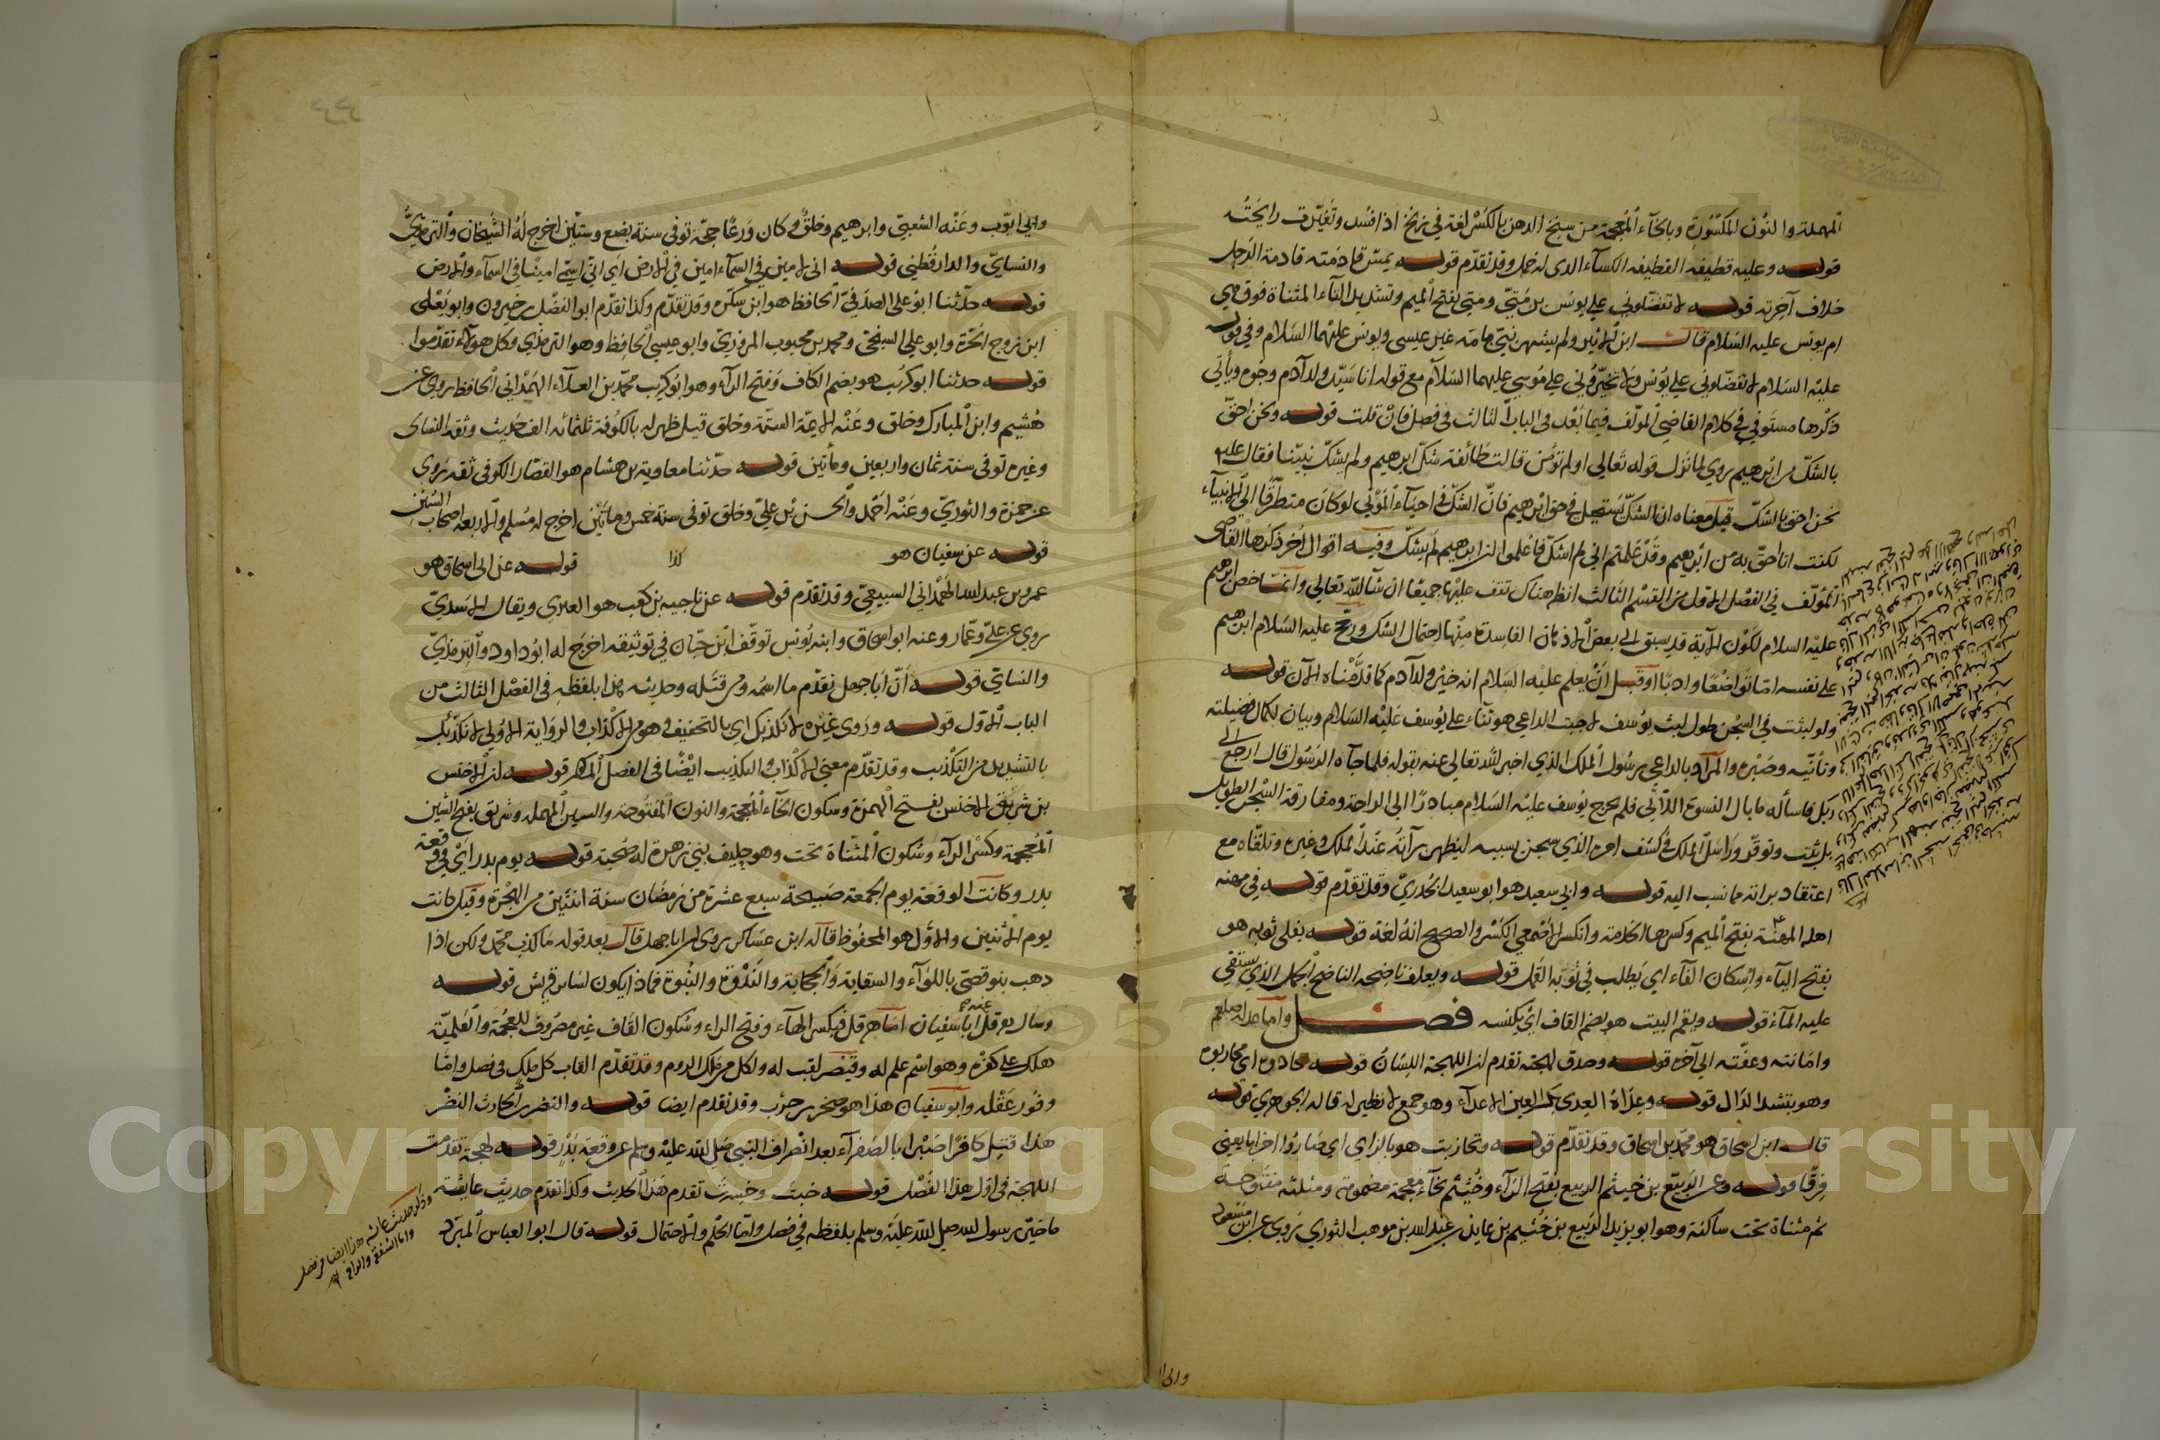 المهملة والنون المكسورة وبالخاء المعجمة من سنخ الدهن بالكسر لغة في زنخ اذا فسد وتغيرت رايحته
قوله وعليه قطيفة القطيفة الكساء الذي له خمل وقد تقدم قوله يمس قادمته قادمة الرحل
خلاف آخرته قوله لا تفضلوني على يونس بن متى ومتى بفتح الميم وتشديد التاء المثناة فوق هي
ام يونس عليه السلام قال ابن الاثير ولم يشتهر نبي بامه غير عيسى ويونس عليهما السلام وفي قوله
عليه السلام لا تفضلوني على يونس ولا تخيروني على موسى عليهما السلام مع قوله انا سيد ولد آدم وجوه ويأتي
ذكرها مستوفى في كلام القاضي المولف فيما بعد في الباب الثالث في فصل فان قلت قوله ونحن احق
بالشك من ابرهيم روى لما نزل قوله تعالى اولم تؤمن قالت طائفة شك ابرهيم ولم يشك نبينا فقال عليه
نحن احق بالشك قيل معناه ان الشك يستحيل في حق ابرهيم فان الشك في احياء الموتى لو كان متطرقا الى الانبياء
لكنت انا احق به من ابرهيم وقد علمتم اني لم اشك فاعلموا ان ابرهيم لم يشك وفيه اقوال اخر ذكرها القاضي
المؤلف في الفصل الاول من القسم الثالث انظر هناك تقف عليها جميعا ان شا الله تعالى وانما خص ابرهيم
عليه السلام لكون الآية قد يسبق الى بعض الاذهان الفاسدة منها احتمال الشك ورجح عليه السلام ابرهيم
على نفسه اما تواضعا وادبا او قبل ان يعلم عليه السلام انه خير ولد آدم كما قدمناه الآن قوله
ولو لبثت في السجن طول لبث يوسف لاجبت الداعي هو ثناء على يوسف عليه السلام وبيان لكمال فضيلته
وتأنيه وصبره والمراد بالداعي رسول الملك الذي اخبر الله تعالى عنه بقوله فلما جاه الرسول قال ارجع الى
ربك فاسأله ما بال النسوة اللاتي فلم يخرج يوسف عليه السلام مبادرا الى الراحة ومفارقة السجن الطويل
بل تثبت وتوقر وراسل الملك في كشف امره الذي سجن بسببه ليظهر برآته عند الملك وغيره وتلقاه مع
اعتقاد براته مما نسب اليه قوله وابي سعيد هو ابو سعيد الخدري وقد تقدم قوله في مهنه
اهله المهنة بفتح الميم وكسرها الخدمة وانكر الاصمعي الكسر والصحيح انه لغة قوله يفلي ثوبه هو
بفتح الياء واسكان الفاء اي يطلب في ثوبه القمل قوله ويعلف ناضحه الناضح الجمل الذي يستقي
عليه الماء قوله ويقم البيت هو بضم القاف اي يكنسه فصل واما عدله صلعم
وامانته وعفته الى آخره قوله وصدق لهجته تقدم ان اللهجة اللسان قوله محادوه اي محاربوه
وهو بتشد الدال قوله وعداه العدى بكسر العين الاعداء وهو جمع لا نظير له قاله الجوهري قوله
قال ابن اسحاق هو محمد بن اسحاق وقد تقدم قوله وتحازبت هو بالزاي اي صاروا احزابا يعني
فرقا قوله وعن الربيع بن خيثم الربيع بفتح الراء وخثيم بخاء معجمة مضمومة ومثلثة مفتوحة
ثم مثناة تحت ساكنة وهو ابو يزيد الربيع بن خثيم بن عايذ بن عبد الله بن موهب الثوري يروي عن ابن مسعود
والى ا
وابي ايوب وعنه الشعبي وابرهيم وخلق وكان ورعا حجة توفي سنة بضع وستين اخرج له الشيخان والترمذي
والنساي والدارقطني قوله اني لامين في السماء امين في الارض اي اني اسمى امينا في السماء والارض
قوله حدثنا ابو علي الصدفي الحافظ هو ابن سكرة وقد تقدم وكذا تقدم ابو الفضل بن خيرون وابو يعلى
ابن زوج الحرة وابو علي السنجي ومحمد بن محبوب المروزي وابو عيسى الحافظ وهو الترمذي وكل هولاء تقدموا
قوله حدثنا ابو كريب هو بضم الكاف وفتح الراء وهو ابو كريب محمد بن العلاء الهمداني الحافظ يروي عن
هشيم وابن المبارك وخلق وعنه الائمة الستة وخلق قيل ظهر له بالكوفة ثلثمائه الف حديث وثقه النساى
وغيره توفي سنة ثمان واربعين ومأتين قوله حدثنا معاوية بن هشام هو القصار الكوفي ثقة يروي
عن حمزة والثوري وعنه احمد والحسن بن علي وخلق توفي سنة خمس ومايتين اخرج له مسلم والاربعه اصحاب السنن
قوله عن سفيان هو كذا قوله عن ابي اسحاق هو
عمرو بن عبد الله الهمداني السبيعي وقد تقدم قوله عن ناجيه بن كعب هو العبزي ويقال الاسدي
يروي عن علي وعمار وعنه ابو اسحاق وابنه يونس توقف ابن حبان في توثيقه اخرج له ابو داود والترمذي
والنساي قوله ان ابا جهل تقدم ما اسمه ومن قتله وحديثه هذا بلفظه في الفصل الثالث من
الباب الاول قوله وروى غيره لا نكذبك اي بالتخفيف وهو من الاكذاب والرواية الاولى لا نكذبك
بالتشديد من التكذيب وقد تقدم معنى الاكذاب والتكذيب ايضا في الفصل المذكور قوله ان الاخنس
بن شريق الاخنس بفتح الهمزة وسكون الخاء المعجمة والنون المفتوحة والسين المهملة وشريق بفتح الشين
المعجمة وكسر الراء وسكون المثناة تحت وهو حليف بني زهرة له صحبة قوله يوم بدر اي في وقعة
بدر وكانت الوقعة يوم الجمعة صبيحة سبع عشرة من رمضان سنة اثنتين من الهجرة وقيل كانت
يوم الاثنين والاول هو المحفوظ قاله ابن عساكر روى ان ابا جهل قال بعد قوله ما كذب محمد ولكن اذا
ذهب بنو قصي باللواء والسقاية والحجابة والندوة والنبوة فماذا يكون لساير قريش قوله
وسال هرقل عنه ابا سفيان اما هرقل فبكسر الهاء وفتح الراء وسكون القاف غير مصروف للعجمة والعلمية
هلك على كفره وهو اسم علم له وقيصر لقب له ولكل من ملك الروم وقد تقدم القاب كل ملك في فصل واما
وفور عقله وابو سفيان هذا هو صخر بن حرب وقد تقدم ايضا قوله والنضر بن الحارث النضر
هذا قتل كافرا صبرا بالصفراء بعد انصراف النبي صلى الله عليه وسلم عن وقعة بدر قوله لهجة تقدمت
اللهجة في اول هذا الفصل قوله خبت وخسرت تقدم هذا الحديث وكذا تقدم حديث عايشة
ما خير رسول الله صلى الله عليه وسلم بلفظه في فصل واما الحلم والاحتمال قوله قال ابو العباس المبرد
وذكر حديث عائشة هذا ايضا في فصل
واما الشفقة والرافة